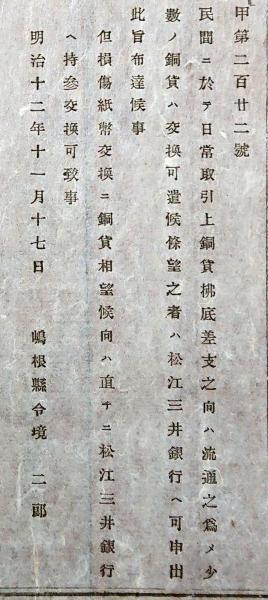 甲第二百廿二號
民間ニ於テ日常取引上銅貨拂底差支之向ハ流通之爲メ少
數ノ銅貨ハ交換可遣候條望之者ハ松江三井銀行ヘ可申出
此旨布達候事
但損傷紙幣交換ニ銅貨相望候向ハ直チニ松江三井銀行
ヘ持參交換可致事
明治十二年十一月十七日　嶋根縣令境　二郎